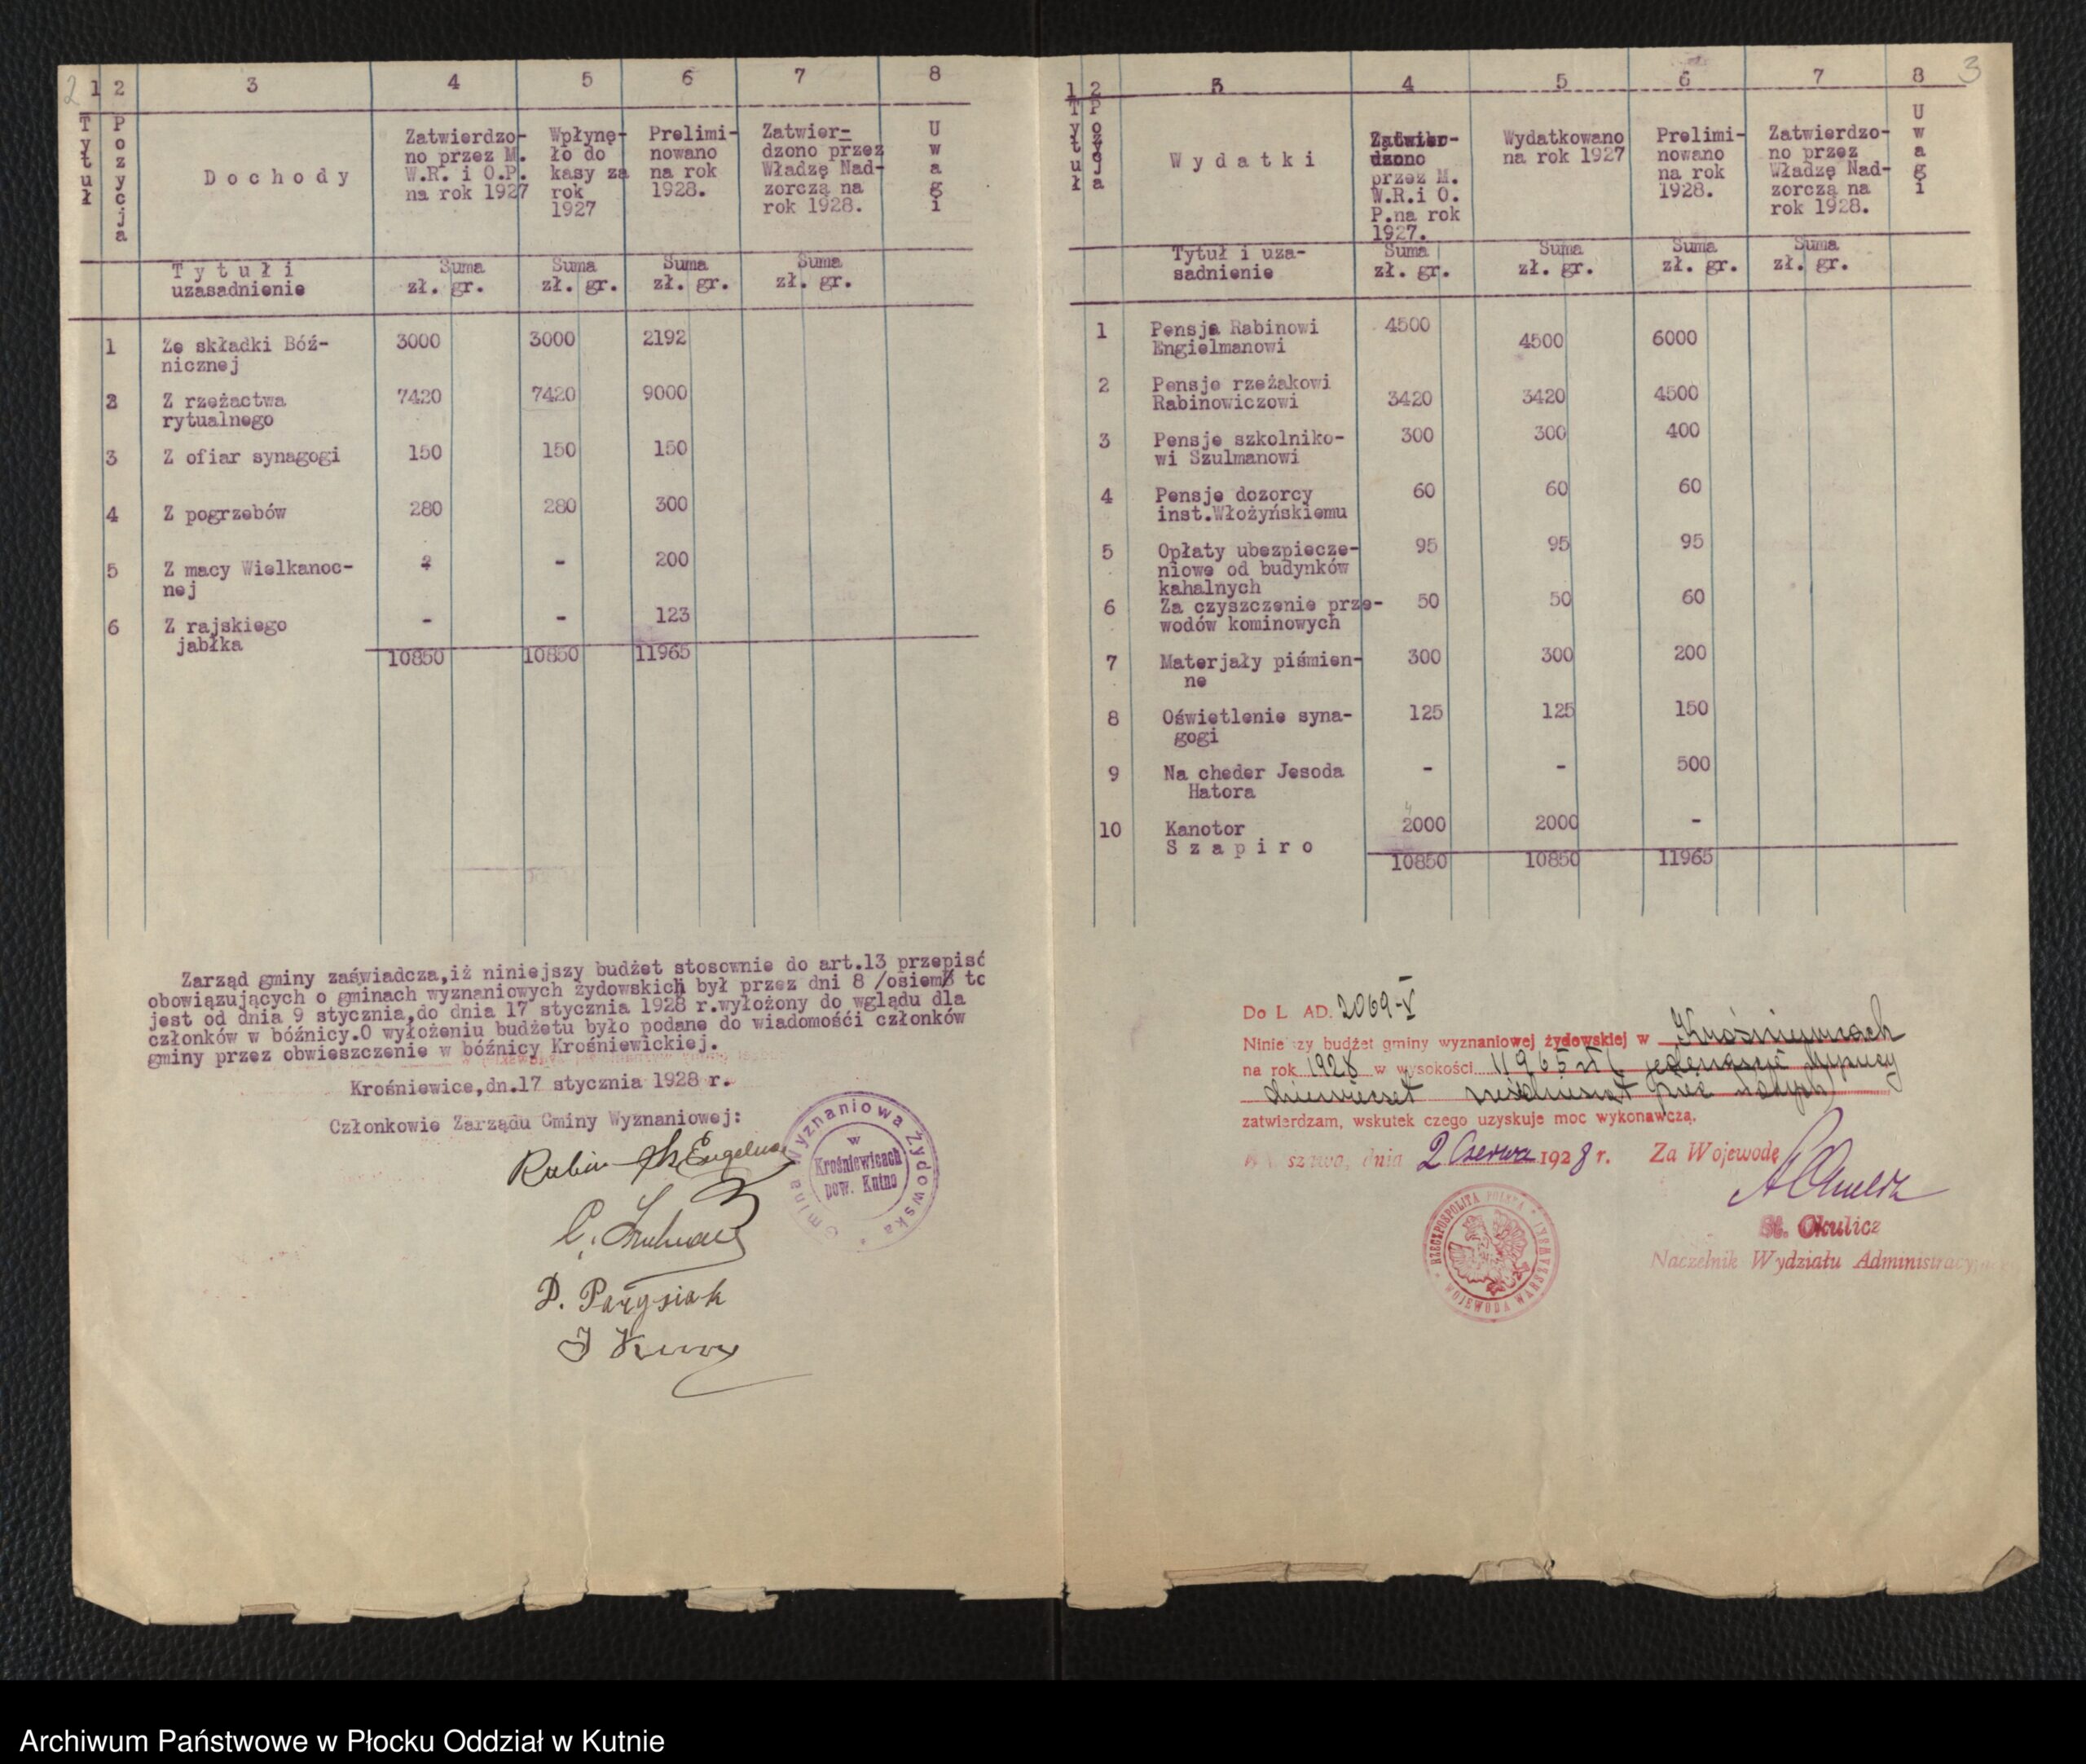 2
1 2 3 4 5 6 7 8
Tytuł
Pozycja
Dochody
Zatwierdzo-
no przez M.
W.R. i O.P.
na rok 1927
Wpłynę-
ło do
kasy za
rok
1927
Prelimi-
nowano
na rok
1928.
Zatwier-
dzono przez
Władzę Nad-
zorczą na
rok 1928.
Uwagi
Tytuł i
uzasadnienie
Suma
zł. gr.
Suma
zł. gr.
Suma
zł. gr.
Suma
zł. gr.
1 Ze składki Bóź- 3000 3000 2192
nicznej
2 Z rzeżactwa 7420 7420 9000
rytualnego
3 Z ofiar synagogi 150 150 150
4 Z pogrzebów 280 280 300
5 Z macy Wielkanoc- - 200
nej
6 Z rajskiego - - 123
jabłka
10850 10850 11965
Zarząd gminy zaświadcza,iż niniejszy budżet stosownie do art.13 przepisó
obowiązujących o gminach wyznaniowych żydowskich był przez dni 8 /osiem/ to
jest od dnia 9 stycznia,do dnia 17 stycznia 1928 r.wyłożony do wglądu dla
członków w bóźnicy.O wyłożeniu budżetu było podane do wiadomośći członków
gminy przez obwieszczenie w bóźnicy Krośniewickiej.
Krośniewice,dn.17 stycznia 1928 r.
Członkowie Zarządu Gminy Wyznaniowej:
Rabin Engelman
Gmina Wyznaniowa Żydowska
w
Krośniewicach
pow. Kutno
D. Parysiak
3
1 2 3 4 5 6 7 8
Tytuł
Pozycja
Wydatki
Zatwier-
dzono
przez M.
W.R.i O.
P.na rok
1927.
Wydatkowano
na rok 1927
Prelimi-
nowano
na rok
1928.
Zatwierdzo-
no przez
Władzę Nad-
zorczą na
rok 1928.
Uwagi
Tytuł i uza-
sadnienie
Suma
zł. gr.
Suma
zł. gr.
Suma
zł. gr.
Suma
zł. gr.
1 Pensja Rabinowi 4500 4500 6000
Engielmanowi
2 Pensje rzeżakowi 3420 3420 4500
Rabinowiczowi
3 Pensje szkolniko- 300 300 400
wi Szulmanowi
4 Pensje dozorcy 60 60 60
inst.Włożyńskiemu
5 Opłaty ubezpiecze- 95 95 95
niowe od budynków
kahalnych
6 Za czyszczenie prze- 50 50 60
wodów kominowych
7 Materjały piśmien- 300 300 200
ne
8 Oświetlenie syna- 125 125 150
gogi
9 Na cheder Jesoda - - 500
Hatora
10 Kanotor 2000 2000 -
Szapiro
10850 10850 11965
Do L AD. 2069-V
Niniejszy budżet gminy wyznaniowej żydowskiej w Krośniewicach
na rok 1928 w wysokości 11965 zł ( jedenaście tysięcy
dziewięćset sześćdziesiąt pięć złotych)
zatwierdzam, wskutek czego uzyskuje moc wykonawczą.
Warszawa, dnia 2 Czerwca 1928 r. Za Wojewodę
St. Okulicz
Naczelnik Wydziału Administracyjnego
RZECZPOSPOLITA POLSKA
WOJEWODA WARSZAWSKI
Archiwum Państwowe w Płocku Oddział w Kutnie